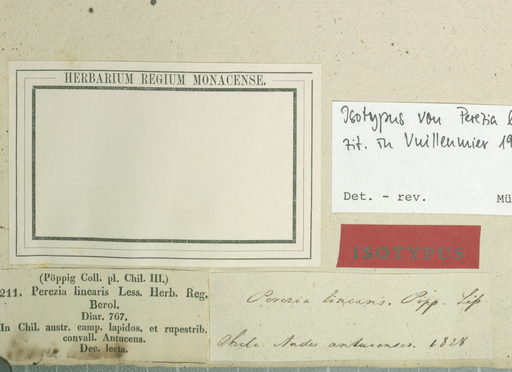 HERBARIUM REGIUM MONACENSE.
Isotypus von Perezia
zit. in Vuilleumier 19
Det. - rev. Mü
ISOTYPUS
(Pöppig Coll. pl. Chil. III.)
211. Perezia linearis Less. Herb. Reg.
Berol.
Diar. 767.
In Chil. austr. camp. lapidos. et rupestrib.
convall. Antucens.
Dec. lecta.
Perezia linearis. Pöpp.
Chile Andes antucenses. 1828